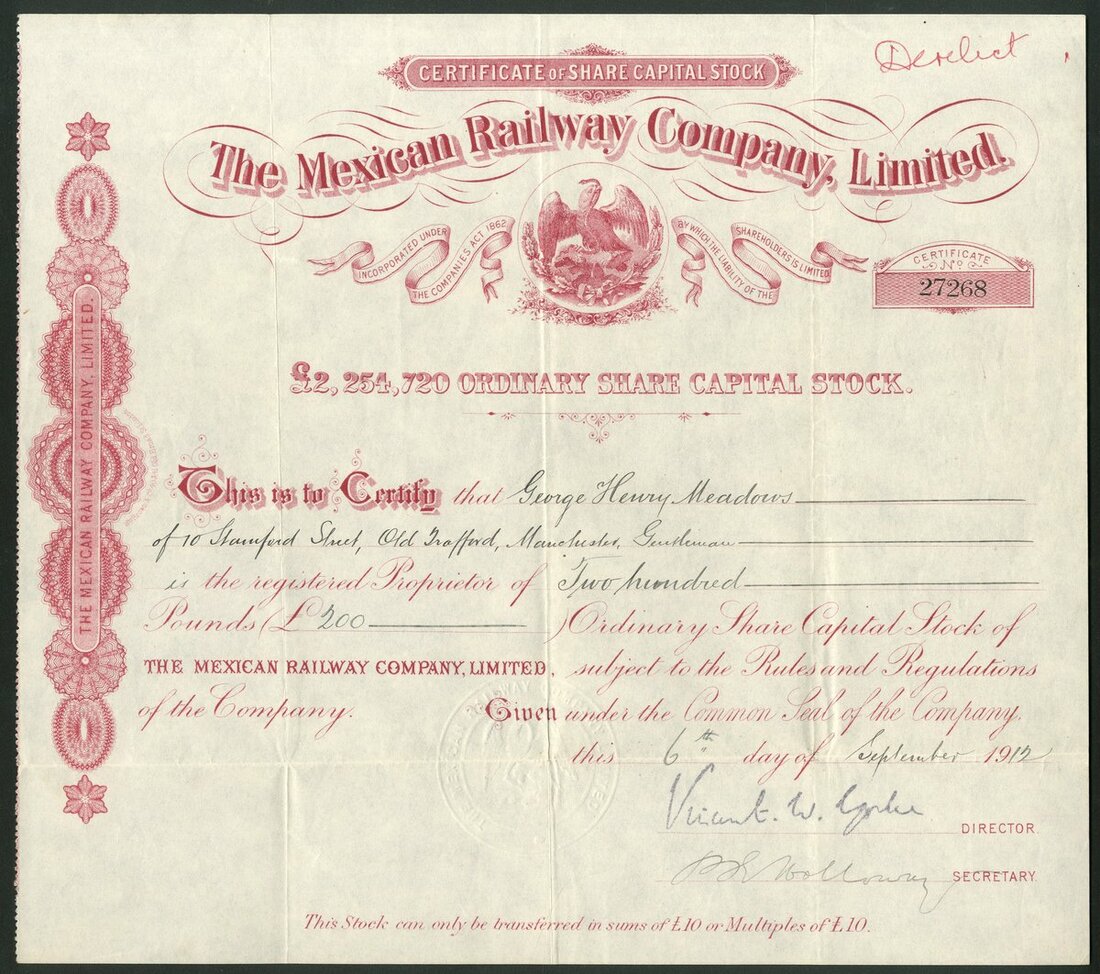 Derelict
CERTIFICATE OF SHARE CAPITAL STOCK
The Mexican Railway Company, Limited.
INCORPORATED UNDER
THE COMPANIES ACT 1862
BY WHICH THE LIABILITY OF THE
SHAREHOLDERS IS LIMITED
CERTIFICATE
No
27268
£2,254,720 ORDINARY SHARE CAPITAL STOCK.
THE MEXICAN RAILWAY COMPANY, LIMITED.
This is to Certify that George Henry Meadows
of 10 Stamford Street, Old Trafford, Manchester, Gentleman
is the registered Proprietor of Two hundred
Pounds (£ 200 ) Ordinary Share Capital Stock of
THE MEXICAN RAILWAY COMPANY, LIMITED, subject to the Rules and Regulations
of the Company. Given under the Common Seal of the Company.
this 6th day of September 1912
Vincent W. Yorke
DIRECTOR.
Holloway
SECRETARY.
This Stock can only be transferred in sums of £10 or Multiples of £10.